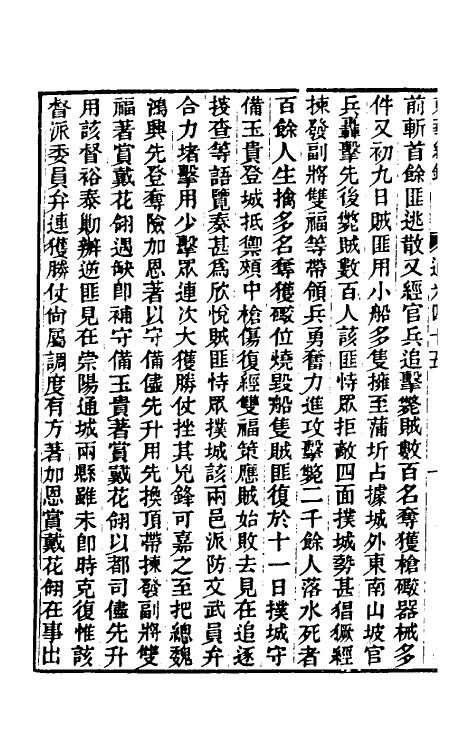 前斬首餘匪逃散又經官兵追擊斃賊數百名奪獲槍礮器械多
件又初九日賊匪用小船多隻擁至蒲圻占據城外東南山坡官
兵轟擊先後斃賊數百人該匪恃眾拒敵四面撲城勢甚猖獗經
揀發副將雙福等帶領兵勇奮力進攻擊斃二千餘人落水死者
百餘人生擒多名奪獲礮位燒毀船隻賊匪復於十一日撲城守
備玉貴登城抵禦頰中槍傷復經雙福策應賊始敗去見在追逐
搜查等語覽奏甚爲欣悅賊匪恃眾撲城該兩邑派防文武員弁
合力堵擊用少擊眾連次大獲勝仗挫其兇鋒可嘉之至把總魏
鴻興先登奪險加恩著以守備儘先升用先換頂帶揀發副將雙
福著賞戴花翎遇缺卽補守備玉貴著賞戴花翎以都司儘先升
用該督裕泰勦辦逆匪見在崇陽通城兩縣雖未卽時克復惟該
督派委員弁連獲勝仗尙屬調度有方著加恩賞戴花翎在事出